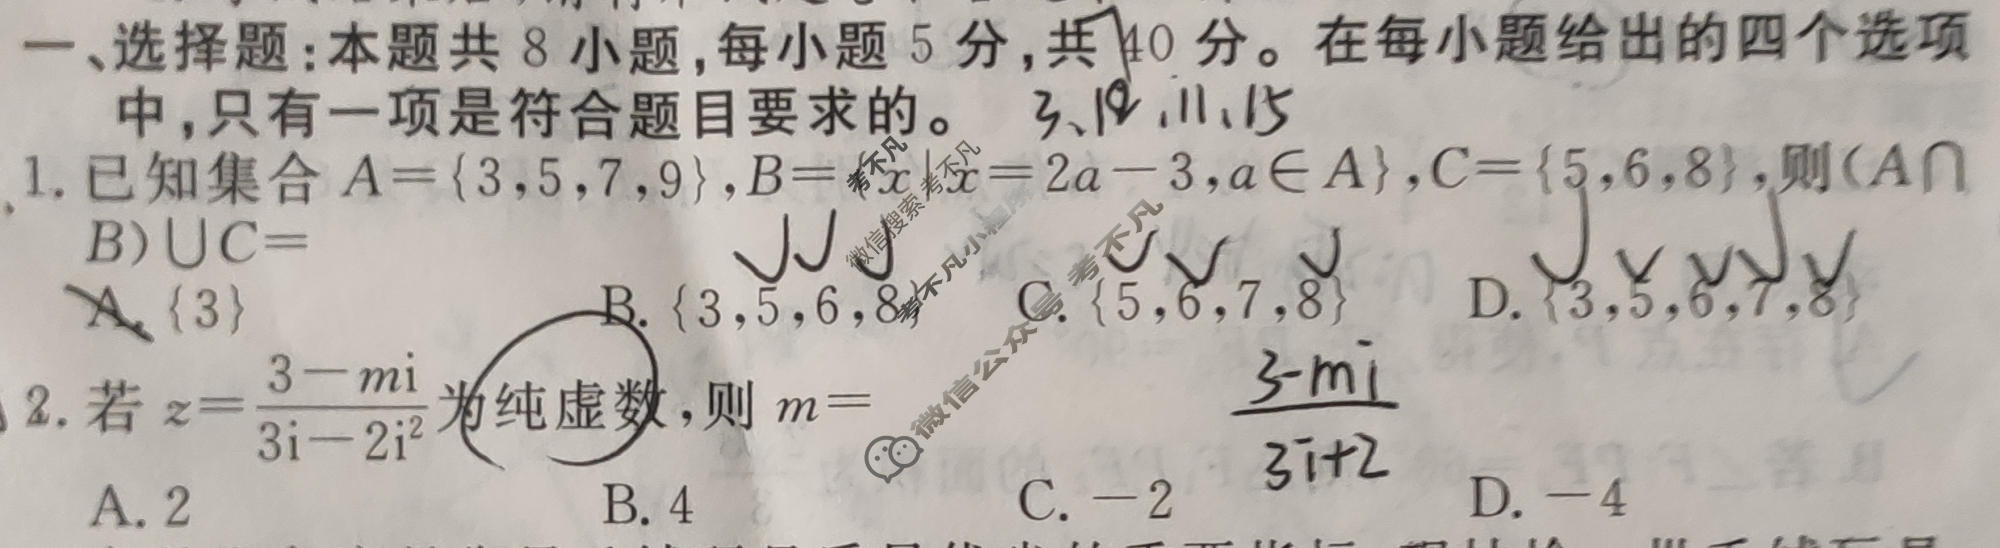 一、选择题:本题共 8 小题,每小题 5 分,共 40 分。在每小题给出的四个选项
中,只有一项是符合题目要求的。 3、19、11、15
1. 已知集合 A={3,5,7,9},B={x|x=2a-3,a∈A},C={5,6,8},则(A∩
B)∪C=
A. {3} B. {3,5,6,8} C. {5,6,7,8} D. {3,5,6,7,8}
2. 若 z=\frac{3-mi}{3i-2i²}为纯虚数,则 m=
3-mi
3i+2
A. 2 B. 4 C. -2 D. -4
考不凡
微信搜索 考不凡
考不凡小程序
微信公众号 考不凡